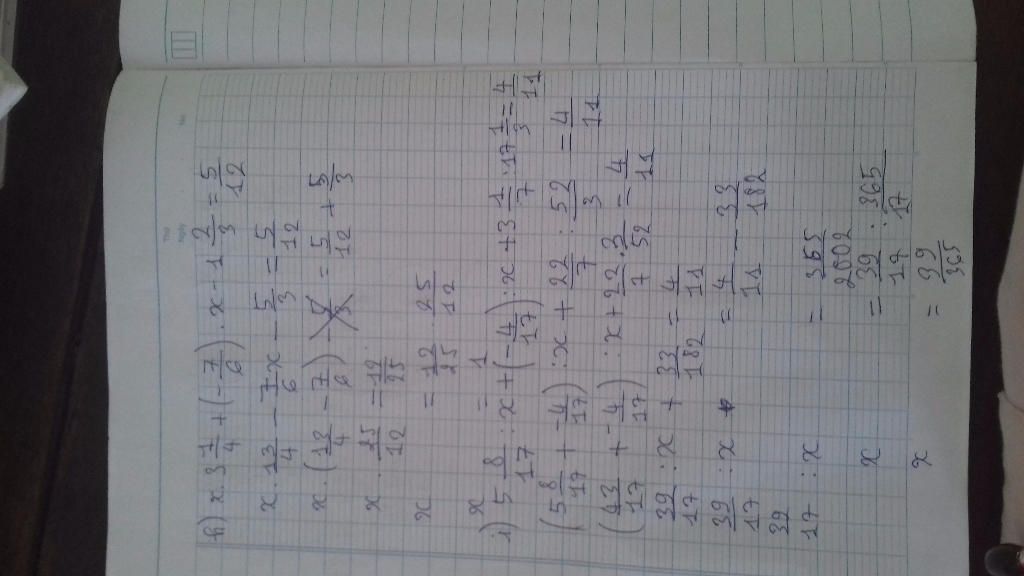 h) x . 3 1/4 + (- 7/6) . x - 1 2/3 = 5/12
x . 13/4 - 7/6 x - 5/3 = 5/12
x . (13/4 - 7/6) = 5/12 + 5/3
x . 25/12 = 25/12
x = 12/25 . 25/12
x = 1
i) 5 8/17 : x + (- 4/17) : x + 3 1/7 : 17 1/3 = 4/11
(5 8/17 + - 4/17) : x + 22/7 : 52/3 = 4/11
(43/17 + - 4/17) : x + 22/7 . 3/52 = 4/11
39/17 : x + 33/182 = 4/11
39/17 : x = 4/11 - 33/182
39/17 : x = 365/2002
x = 39/17 : 365/17
x = 39/365